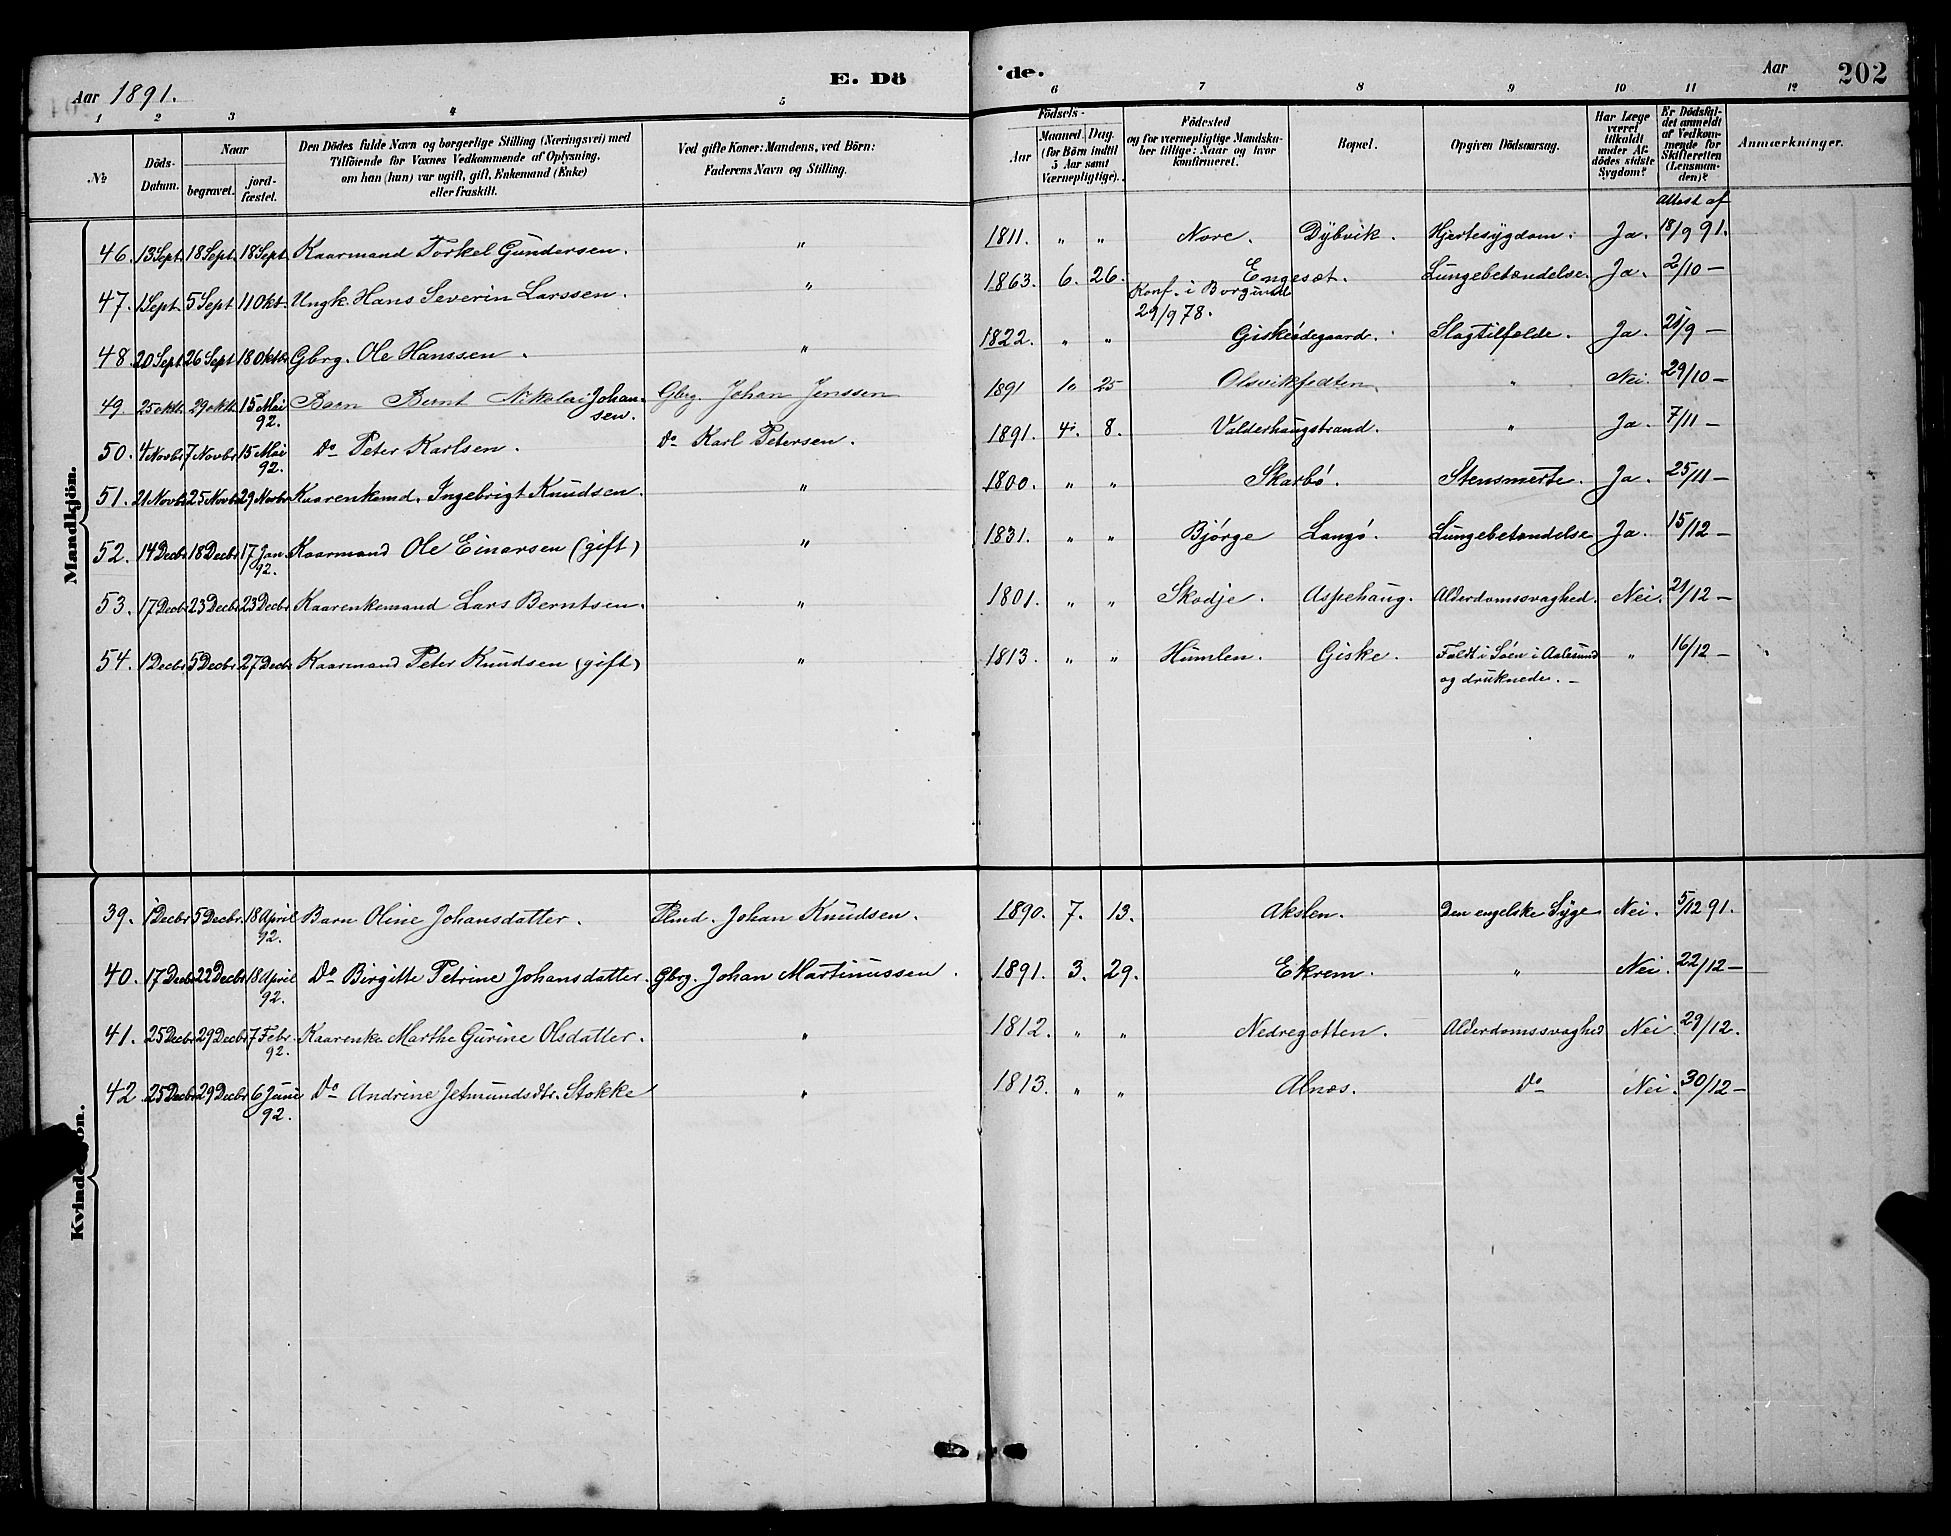 Aar 1891.
E. Dö
de.
Aar
202
1 2 3 4 5 6 7 8 9 10 11 12
№
Döds-Datum.
Naar
begravet.
jord-fæstet.
Den Dödes fulde Navn og borgerlige Stilling (Næringsvei) med
Tilföiende for Voxnes Vedkommende af Oplysning,
om han (hun) var ugift, gift, Enkemand (Enke)
eller fraskilt.
Ved gifte Koner: Mandens, ved Börn:
Faderens Navn og Stilling.
Födsels-
Aar
Maaned. Dag.
(for Börn indtil
5 Aar samt
Værnepligtige).
Födested
og for værnepligtige Mandska-
ber tillige: Naar og hvor
konfirmeret.
Bopæl.
Opgiven Dödsaarsag.
Har Læge
været
tilkaldt
under Af-
dödes sidste
Sygdom?
Er Dödsfal-
det anmeldt
af Vedkom-
mende for
Skifteretten
(Lensman-
den)?
Anmærkninger.
Attest af
Mandkjön.
46. 13 Sept. 18 Sept. 18 Sept. Kaarmand Torkel Gundersen. " 1811. " " Nore. Dybvik. Hjertesygdom. Ja. 18/9 91.
47. 1 Sept. 5 Sept 11 Okt. Ungk. Hans Severin Larssen. " 1863. 6. 26. Engeset. Lungebetændelse. Ja. 2/10 —
Konf. i Borgund
29/9 78.
48. 20 Sept 26 Sept 18 Oktb Gbrg. Ole Hanssen. " 1822. " " Giskeødegaard. Slagtilfælde. Ja. 21/9 —
49. 25 okt. 29 okt. 15 Mai 92. Barn Bernt Nikolai Johan-
sen. Gbrg. Johan Jenssen 1891 10 25 Olsvikfedten " Nei. 29/10 —
50. 4 Novbr 7 Novbr 15 Mai 92. Do Peter Karlsen. Do Karl Petersen. 1891. 4. 8. Valderhaugstrand. " Ja. 7/11 —
51. 21 Novbr 25 Novbr 29 Novbr Kaarenkemd. Ingebrigt Knudsen. " 1800. " " Skarbø. Stensmerte. Ja. 25/11 —
52. 14 Decbr 18 Decbr 17 Jan 92. Kaarmand Ole Einarsen (gift) " 1831. " " Bjørge Langø. Lungebetændelse Ja. 15/12 —
53. 17 Decbr 23 Decbr 23 Decbr Kaarenkemand Lars Berntsen. " 1801. " " Skodje. Aspehaug. Alderdomssvaghed. Nei. 21/12 —
54. 1 Decbr 5 Decbr 27 Decb. Kaarmand Peter Knudsen (gift) " 1813. " " Humlen. Giske. Faldt i Søen i Aalesund
og druknede. — " 16/12 —
Kvindekjön.
39. 1 Decbr 5 Decbr. 18 April 92. Barn Oline Johansdatter. Plmd. Johan Knudsen. 1890. 7. 13. Akslen. Den engelske Syge Nei. 5/12 91.
40. 17 Decbr 22 Decbr 18 April 92. Do Birgitte Petrine Johansdatter. Gbrg. Johan Martinussen. 1891. 3. 29. Ekrem. " Nei. 22/12 —
41. 25 Decbr 29 Decbr 7 Febr. 92. Kaarenke Marthe Gurine Olsdatter. " 1812. " " Nedregotten. Alderdomssvaghed Nei. 29/12.
42 25 Decbr 29 Decbr 6 Juni 92. Do Andrine Jetmundsdtr. Stokke " 1813. " " Alnæs. Do Nei. 30/12 —